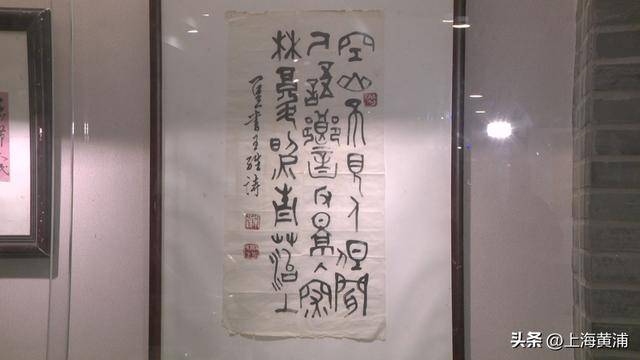 空山不見人但聞
人語響返景入深
林復照青苔上
書王維詩
头条 @上海黄浦